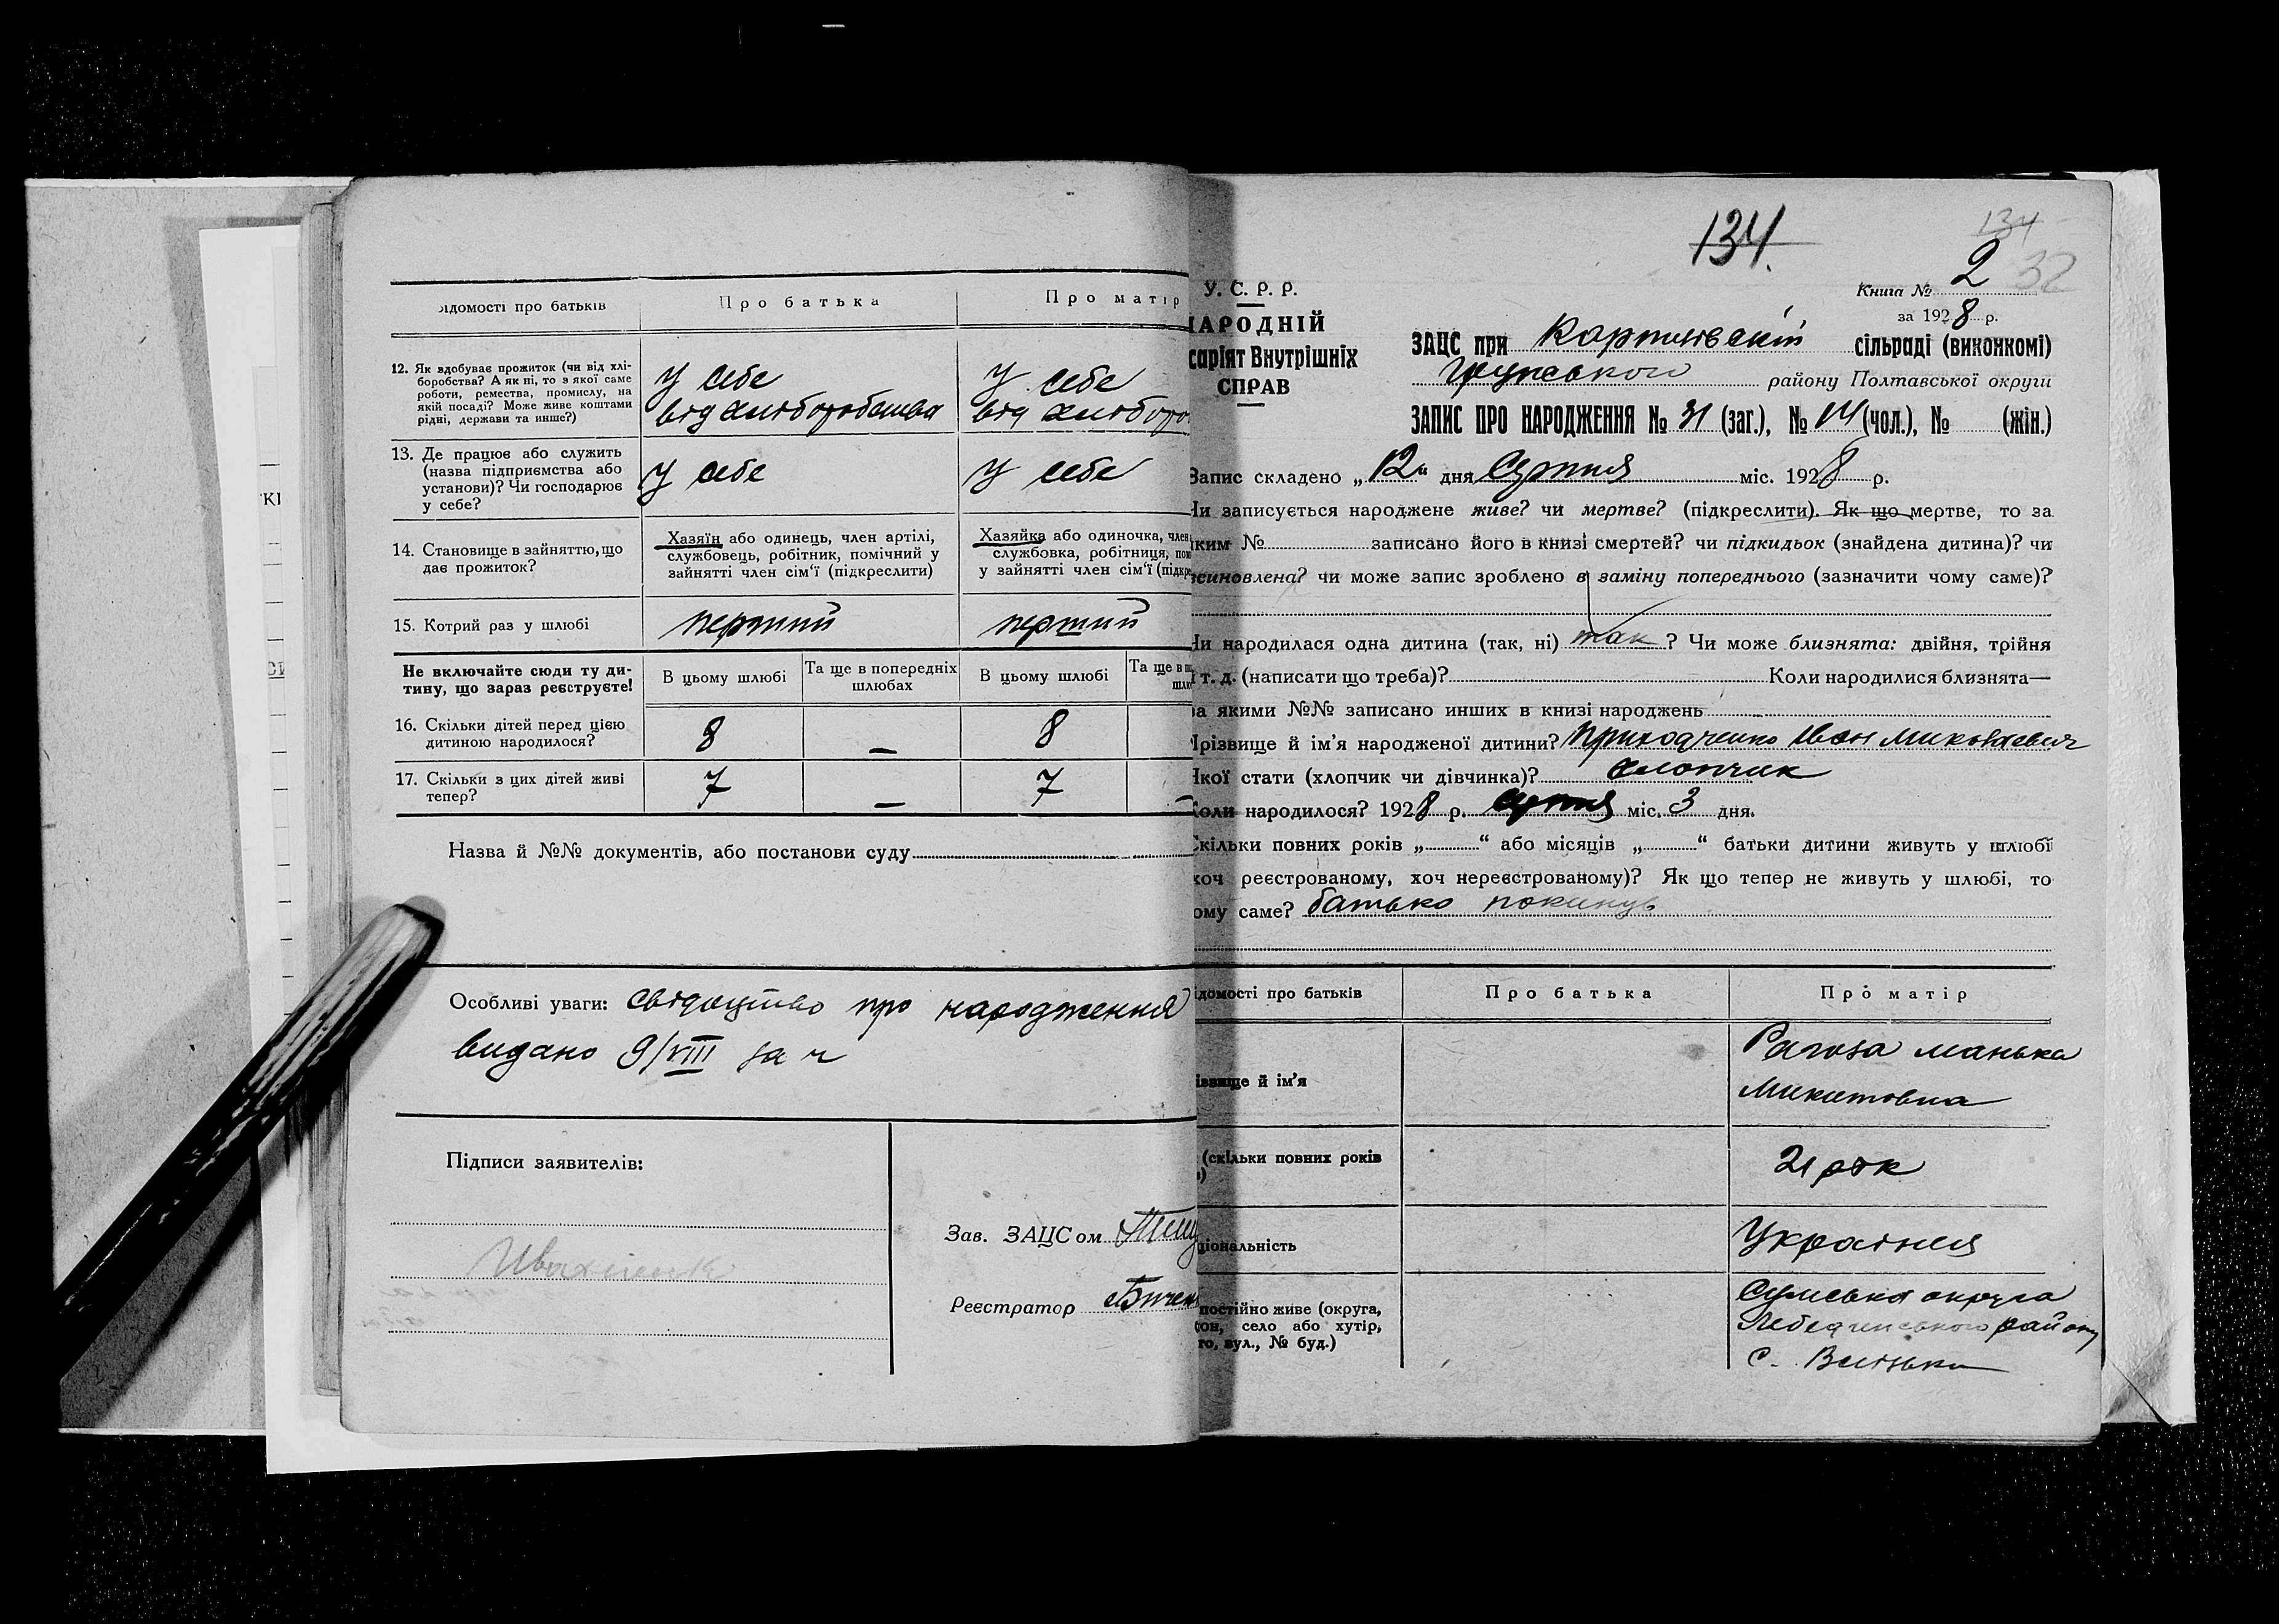 ідомості про батьків
Про батька
Про матір
12. Як здобуває прожиток (чи від хлі-
боробства? А як ні, то з якої саме
роботи, ремества, промислу, на
якій посаді? Може живе коштами
рідні, держави та инше?)
у себе
від хліборобства
у себе
від хліборо
13. Де працює або служить
(назва підприємства або
установи)? Чи господарює
у себе?
у себе
у себе
14. Становище в зайняттю, що
дає прожиток?
Хазяїн або одинець, член артілі,
службовець, робітник, помічний у
зайнятті член сім'ї (підкреслити)
Хазяйка або одиночка, член
службовка, робітниця, пом
у зайнятті член сім'ї (підкре
15. Котрий раз у шлюбі
перший
перший
Не включайте сюди ту ди-
тину, що зараз реєструєте!
В цьому шлюбі
Та ще в попередніх
шлюбах
В цьому шлюбі
Та ще в п
шлю
16. Скільки дітей перед цією
дитиною народилося?
8
—
8
17. Скільки з цих дітей живі
тепер?
7
—
7
—
Назва й №№ документів, або постанови суду
Особливі уваги: свідоцтво про народження
видано 9/VIII за ч
Підписи заявителів:
Зав. ЗАЦСом
Реєстратор
134.
134
32
У. С. Р. Р.
НАРОДНІЙ
саріят Внутрішніх
СПРАВ
Книга № 2
за 1928 р.
ЗАЦС при сільраді (виконкомі)
Грунського району Полтавської округи
ЗАПИС ПРО НАРОДЖЕННЯ № 31 (заг.), № 14 (чол.), № (жін.)
Запис складено „12“ дня Серпня міс. 1928 р.
Чи записується народжене живе? чи мертве? (підкреслити). Як що мертве, то за
яким № записано його в книзі смертей? чи підкидьок (знайдена дитина)? чи
всиновлена? чи може запис зроблено в заміну попереднього (зазначити чому саме)?
Чи народилася одна дитина (так, ні) так? Чи може близнята: двійня, трійня
і т. д. (написати що треба)? Коли народилися близнята—
за якими №№ записано инших в книзі народжень
Прізвище й ім'я народженої дитини? Приходченко Іван Миколаєвич
Якої стати (хлопчик чи дівчинка)? хлопчик
Коли народилося? 1928 р. серпня міс. 3 дня.
Скільки повних років „ “ або місяців „ “ батьки дитини живуть у шлюбі
хоч реєстрованому, хоч нереєстрованому)? Як що тепер не живуть у шлюбі, то
ому саме? батько покинув
ідомості про батьків
Про батька
Про матір
ізвище й ім'я
Рагоза Манька
Микитовна
(скільки повних років
)
21 рок
ціональність
Україния
постійно живе (округа,
он, село або хутір,
го, вул., № буд.)
Сумська округа
Лебединського району
с.